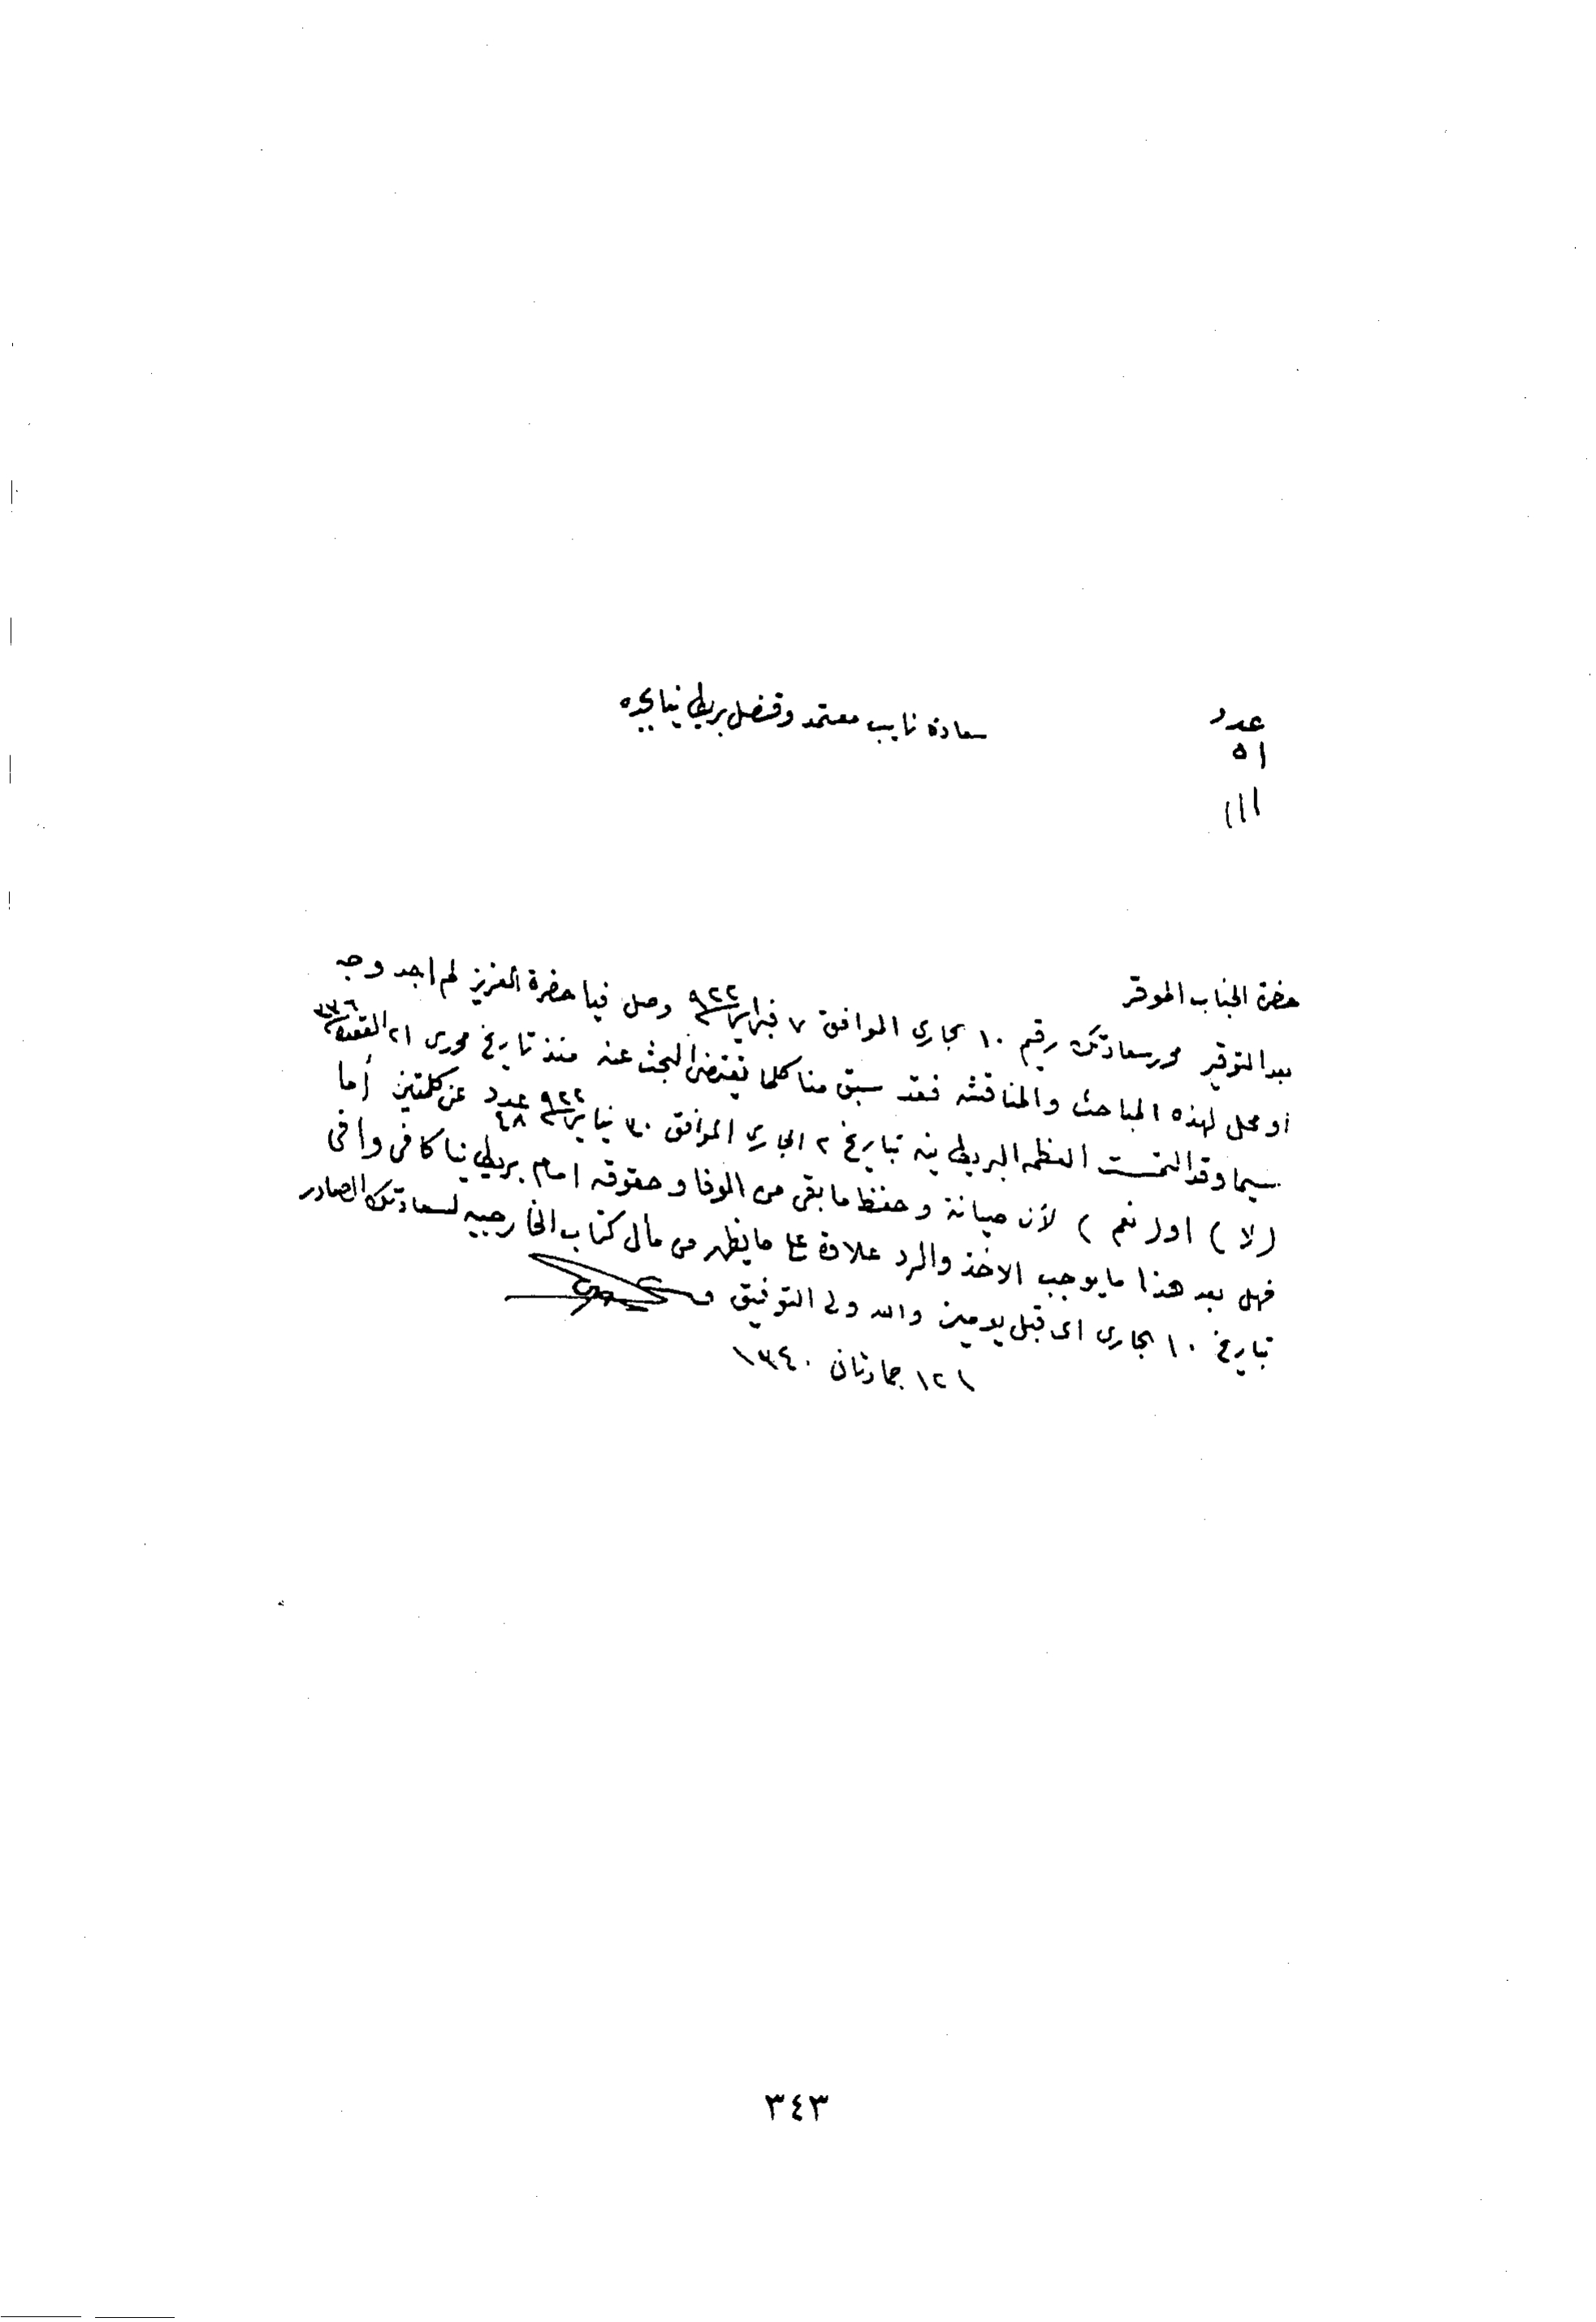 عدد
٥١
سعادة نايب معتمد وقنصل بريطانيا بجده
حضرة الجناب الموقر
بعد التوقير محرر سعادتك رقيم ١٠ جاري الموافق ٧ فبراير ٩٢٢ وصل فيا حضرة العزيز لم اجد وجه
او محل لهذه المباحث والمناقشه فقد سبق منا كلما يقتضي البحث عنه منذ تاريخ محرري ٢١ القعده ٣٣٦
سيما وقد التمست العظمه البريطانيه بتاريخ ٢ الجاري الموافق ٣٠ يناير ٩٢٢ عدد ٤٨ عن كلمتين أما
(لا) او (نعم) لأن صيانة وحفظ ما بقى من الوفا وحقوقه امام بريطانيا كافي وافي
فهل بعد هذا ما يوجب الاخذ والرد علاوة على ما يظهر من مآل كتاب الخارجيه لسعادتك الصادر
بتاريخ ١٠ الجاري اي قبل يومين والله ولي التوفيق
١٢ جمادثان ١٣٤٠
٣٤٣